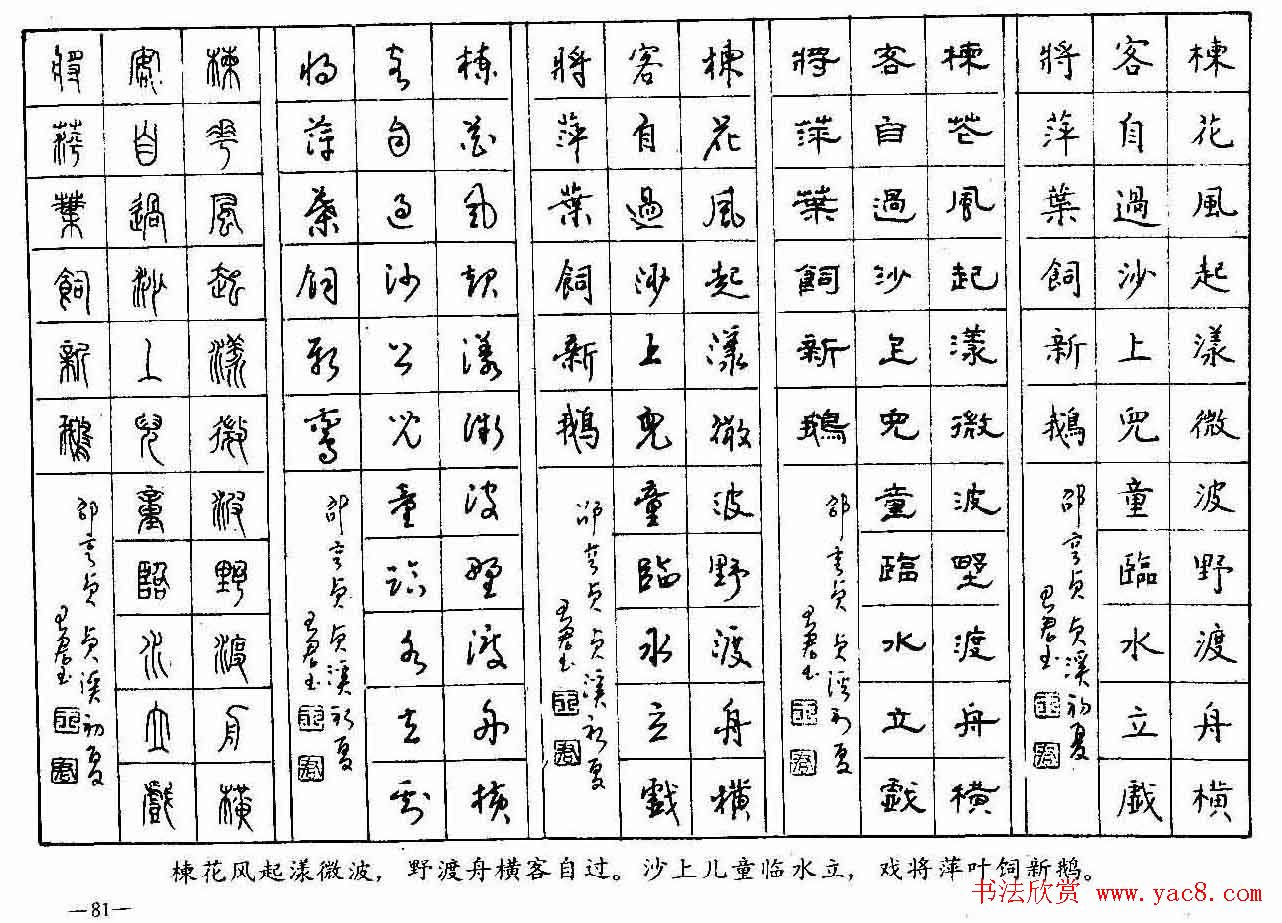 楝花風起漾微波野渡舟橫
客自過沙上兒童臨水立戲
將萍葉飼新鵝
邵亨貞 貞溪初夏
君書
楝花風起漾微波野渡舟橫
客自過沙上兒童臨水立戲
將萍葉飼新鵝
邵亨貞 貞溪初夏
君書
楝花風起漾微波野渡舟橫
客自過沙上兒童臨水立戲
將萍葉飼新鵝
邵亨貞 貞溪初夏
君書
楝花風起漾微波野渡舟橫
客自過沙上兒童臨水立戲
將萍葉飼新鵝
邵亨貞 貞溪初夏
君書
楝花風起漾微波野渡舟橫
客自過沙上兒童臨水立戲
將萍葉飼新鵝
邵亨貞 貞溪初夏
君書
楝花风起漾微波，野渡舟横客自过。沙上儿童临水立，戏将萍叶饲新鹅。
—81—
书法欣赏 www.yac8.com